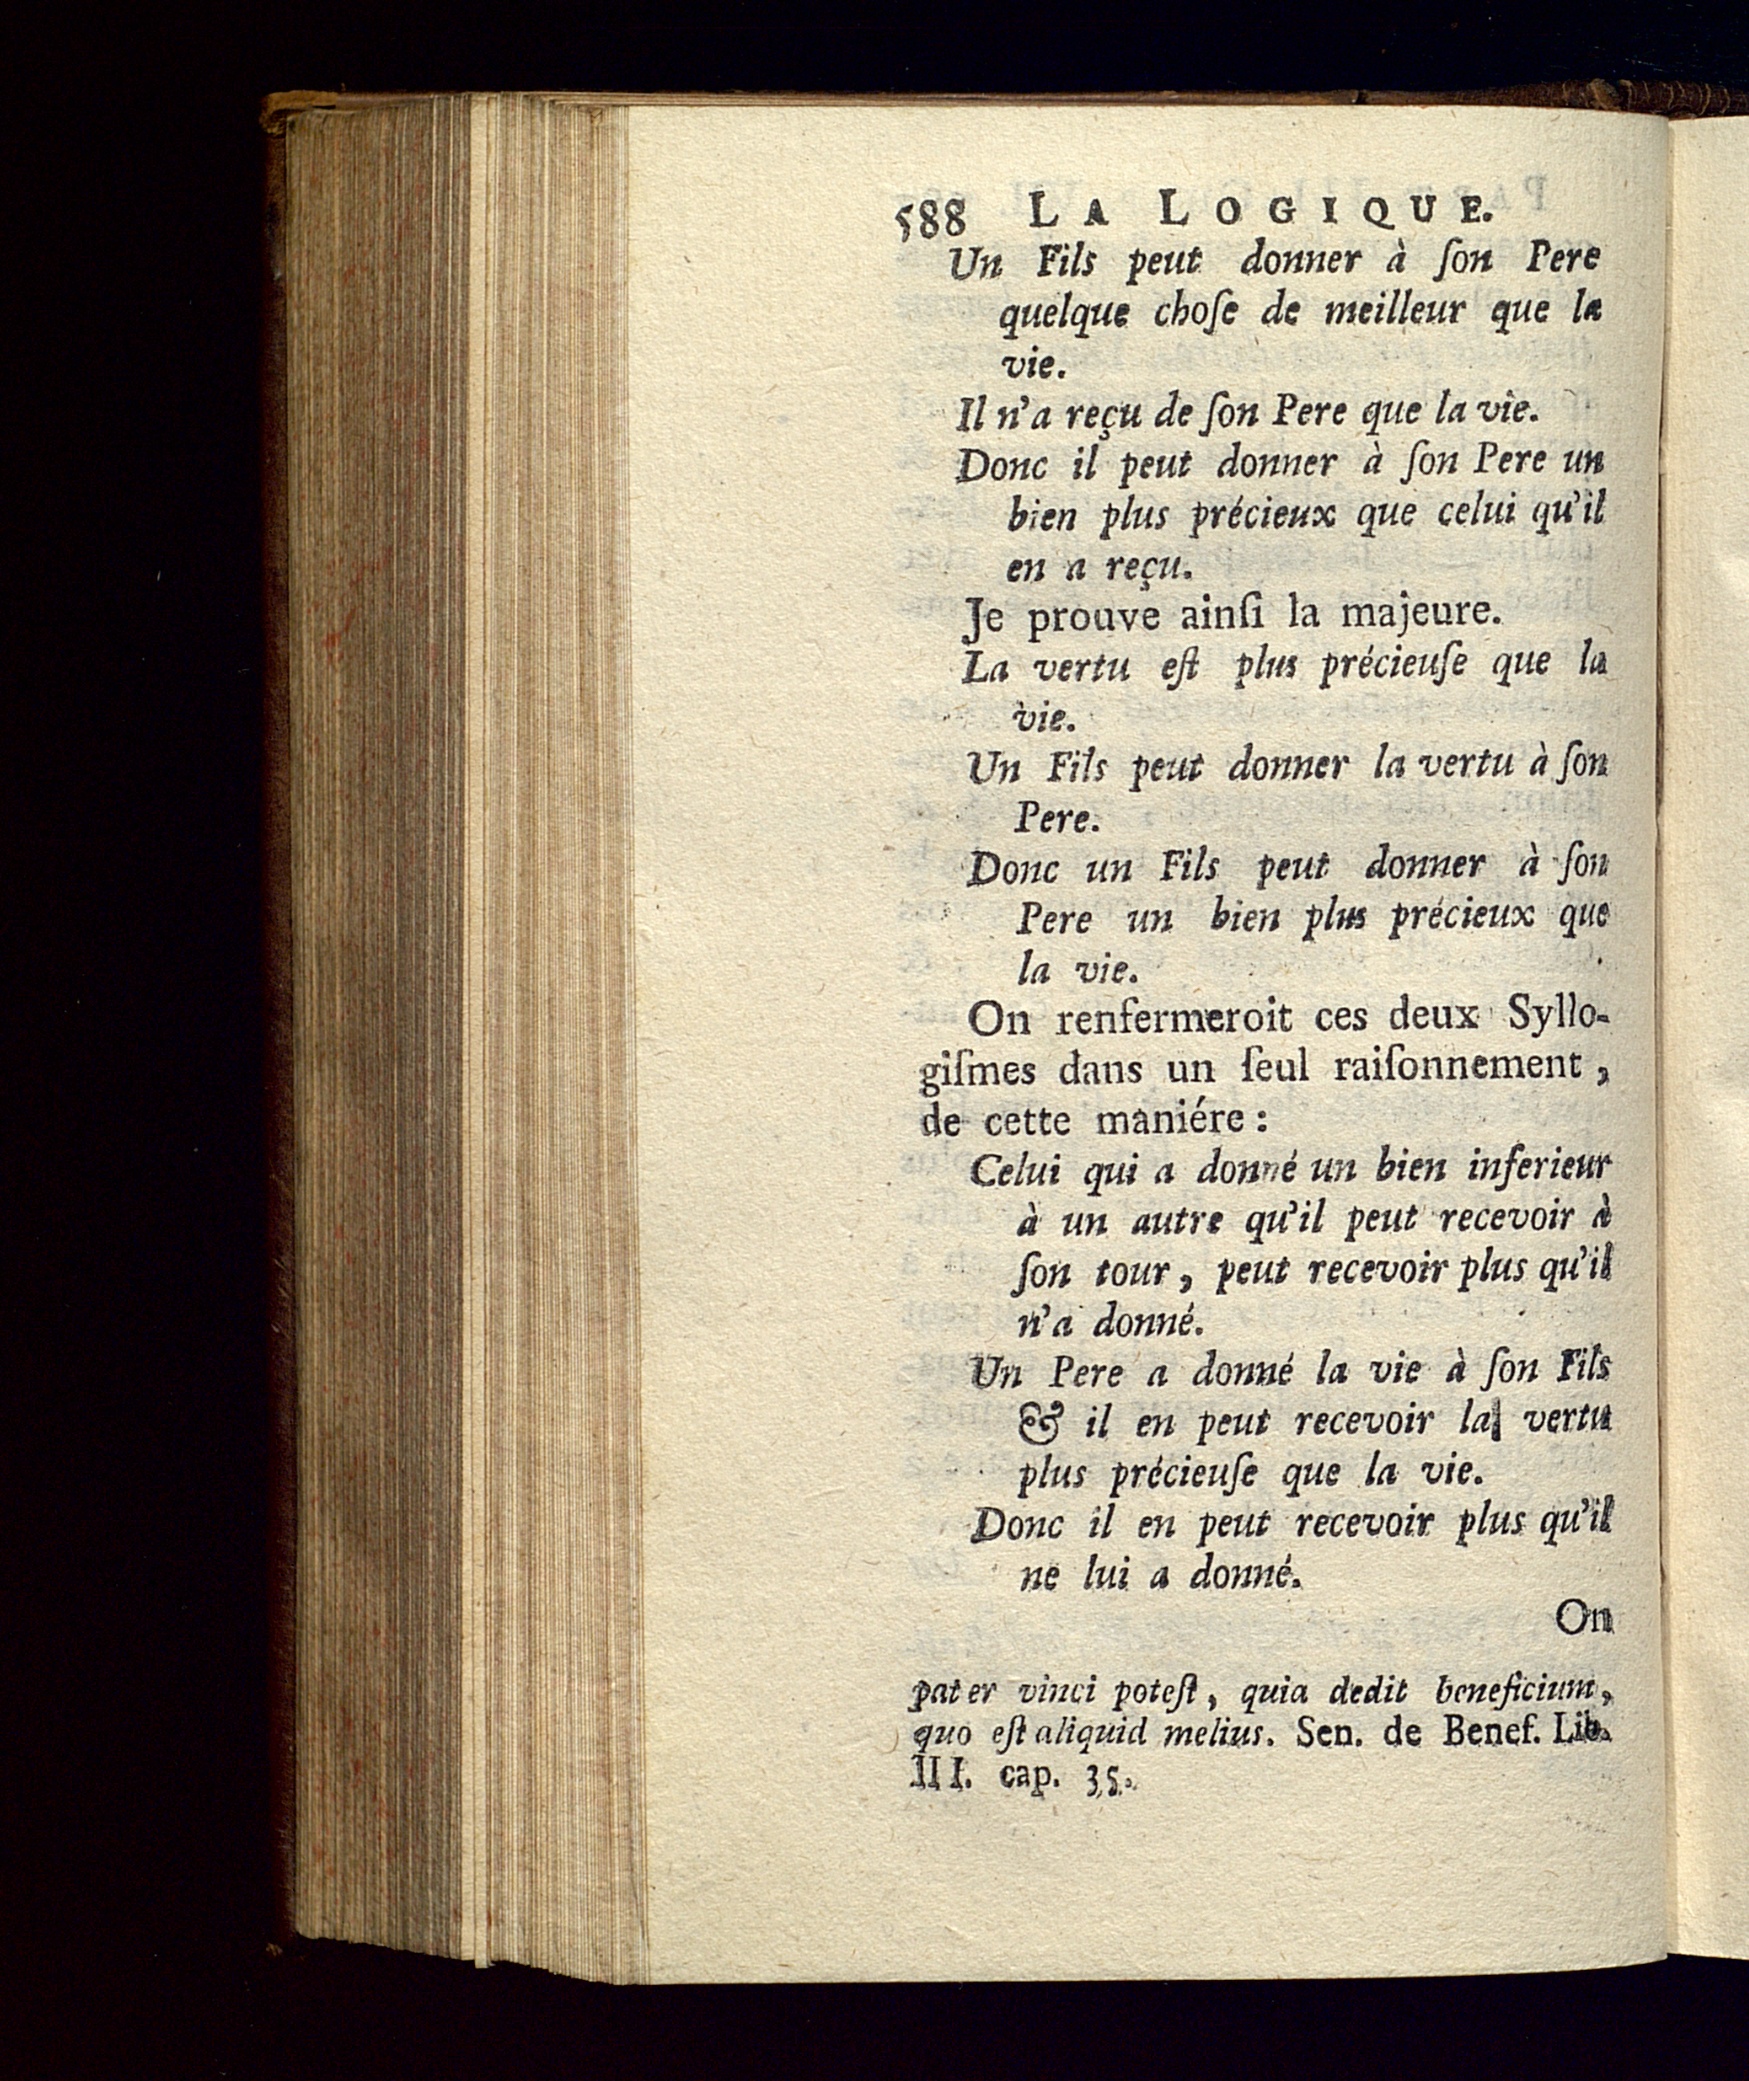 588 LA LOGIQUE.
Un Fils peut donner à ſon Pere
quelque choſe de meilleur que la
vie.
Il n'a reçu de ſon Pere que la vie.
Donc il peut donner à ſon Pere un
bien plus précieux que celui qu'il
en a reçu.
Je prouve ainſi la majeure.
La vertu eſt plus précieuſe que la
vie.
Un Fils peut donner la vertu à ſon
Pere.
Donc un Fils peut donner à ſon
Pere un bien plus précieux que
la vie.
On renfermeroit ces deux Syllo-
giſmes dans un ſeul raiſonnement,
de cette maniére:
Celui qui a donné un bien inferieur
à un autre qu'il peut recevoir à
ſon tour, peut recevoir plus qu'il
n'a donné.
Un Pere a donné la vie à ſon Fils
& il en peut recevoir la vertu
plus précieuſe que la vie.
Donc il en peut recevoir plus qu'il
ne lui a donné.
On
pater vinci poteſt, quia dedit beneficium,
quo eſt aliquid melius. Sen. de Benef. Lib.
III. cap. 35.